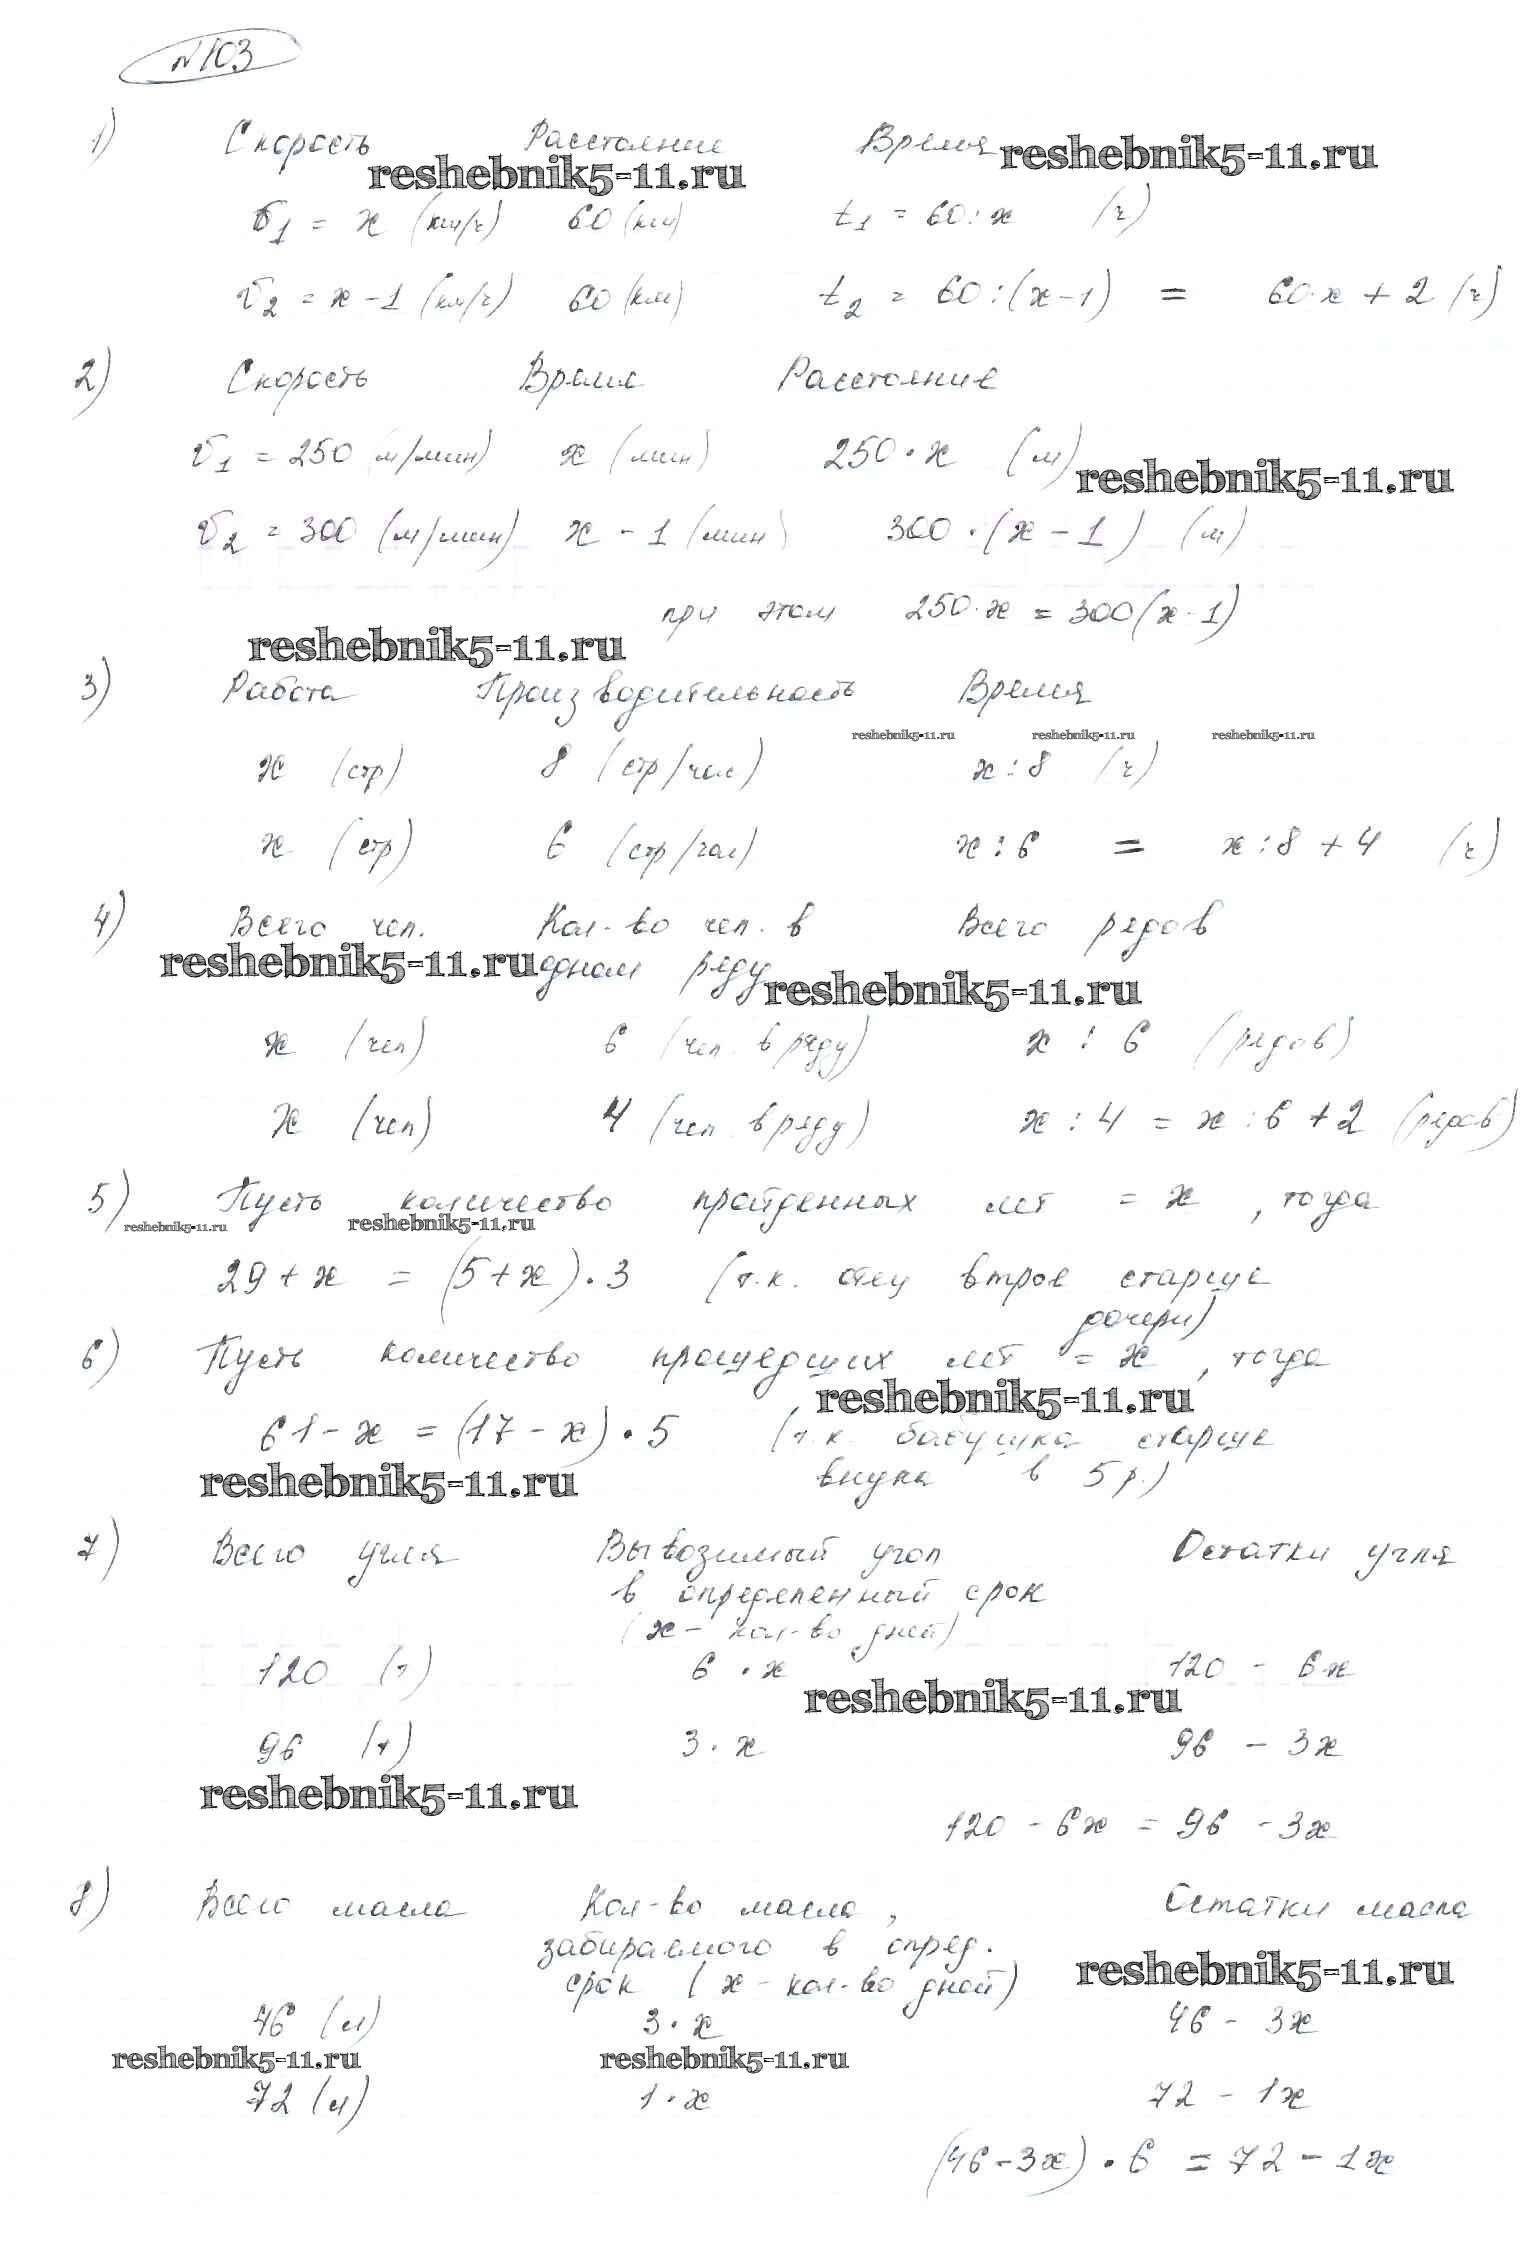 №103
1) Скорость Расстояние Время reshebnik5-11.ru
reshebnik5-11.ru
v₁ = x (км/ч) 60 (км) t₁ = 60:x (ч)
v₂ = x-1 (км/ч) 60 (км) t₂ = 60:(x-1) = 60·x + 2 (ч)
2) Скорость Время Расстояние
v₁ = 250 (м/мин) x (мин) 250·x (м) reshebnik5-11.ru
v₂ = 300 (м/мин) x - 1 (мин) 300·(x-1) (м)
при этом 250·x = 300(x-1)
reshebnik5-11.ru
3) Работа Производительность Время
reshebnik5-11.ru reshebnik5-11.ru reshebnik5-11.ru
x (стр) 8 (стр/час) x:8 (ч)
x (стр) 6 (стр/час) x:6 = x:8 + 4 (ч)
4) Всего чел. Кол-во чел. в Всего рядов
reshebnik5-11.ru одном ряду reshebnik5-11.ru
x (чел) 6 (чел. в ряду) x : 6 (рядов)
x (чел) 4 (чел. в ряду) x : 4 = x : 6 + 2 (рядов)
5) Пусть количество пройденных лет = x, тогда
reshebnik5-11.ru reshebnik5-11.ru
29 + x = (5+x)·3 (т.к. отец втрое старше
дочери)
6) Пусть количество прошедших лет = x, тогда
reshebnik5-11.ru
61 - x = (17 - x)·5 (т.к. бабушка старше
reshebnik5-11.ru внука в 5 р.)
7) Всего угля Вывозимый угол Остатки угля
в определенный срок
(x - кол-во дней)
120 (т) 6·x 120 - 6x
reshebnik5-11.ru
96 (т) 3·x 96 - 3x
reshebnik5-11.ru
120 - 6x = 96 - 3x
8) Всего масла Кол-во масла, Остатки масла
забираемого в опред.
срок (x - кол-во дней) reshebnik5-11.ru
46 (л) 3·x 46 - 3x
reshebnik5-11.ru reshebnik5-11.ru
72 (л) 1·x 72 - 1x
(46-3x)·6 = 72 - 1x